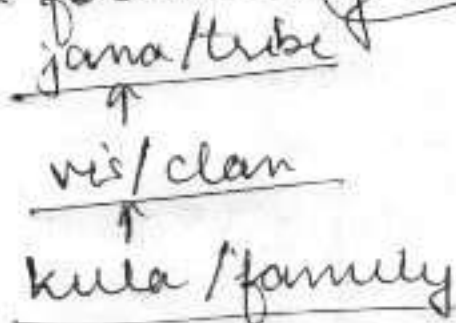 jana/tribe
↑
vis/clan
↑
kula/family